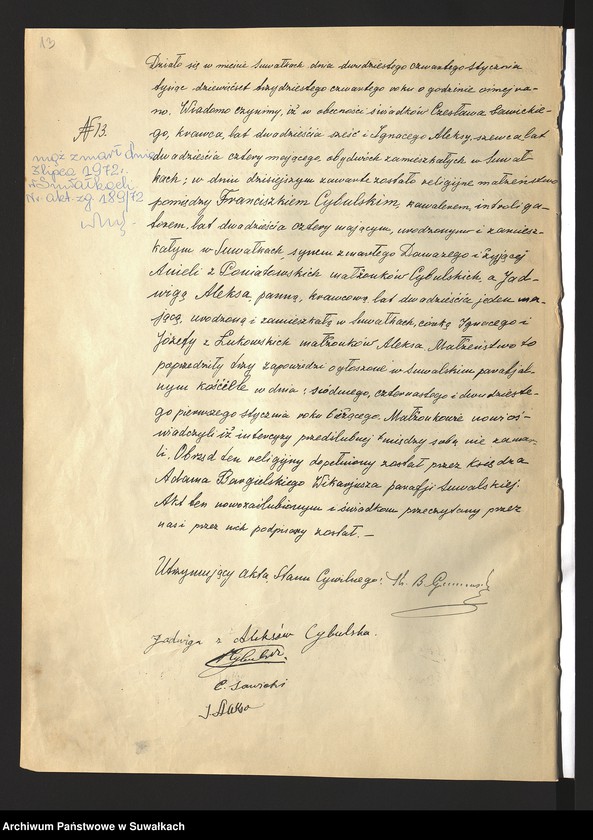 13
Działo się w mieście Suwałkach dnia dwudziestego czwartego stycznia
tysiąc dziewięćset trzydziestego czwartego roku o godzinie ósmej ra-
no. Wiadomo czynimy, iż w obecności świadków Czesława Sawickie-
go, krawca, lat dwadzieścia sześć i Ignacego Aleksy, szewca lat
dwadzieścia cztery mającego, obydwóch zamieszkałych w Suwał-
kach; w dniu dzisiejszym zawarte zostało religijne małżeństwo
pomiędzy Franciszkiem Cybulskim, kawalerem, introliga-
torem, lat dwadzieścia cztery mającym, urodzonym i zamiesz-
kałym w Suwałkach synem zmarłego i żyjącej
Anieli z Poniatowskich małżonków Cybulskich, a Jad-
wigą Aleksa panną, krawcową, lat dwadzieścia jeden ma-
jącą, urodzoną i zamieszkałą w Suwałkach, córką Ignacego i
Józefy z Łukowskich małżonków Aleksa. Małżeństwo to
poprzedziły trzy zapowiedzi ogłoszone w Suwalskim parafjal-
nym kościele w dnia: siódmego, czternastego i dwudzieste-
go pierwszego stycznia roku bieżącego. Małżonkowie nowi oś-
wiadczyli iż intercyzy przedślubnej między sobą nie zawar-
li. Obrzęd ten religijny dopełniony został przez księdza
Adama Bargielskiego Wikarjusza parafji Suwalskiej.
Akt ten nowozaślubionym i świadkom przeczytany przez
nas i przez nich podpisany został. –
№ 13.
mąż zmarł dnia
3 lipca 1972 r.
w Suwałkach
Nr. akt. zg. 189/72
Utrzymujący akta Stanu Cywilnego:
Jadwiga z Aleksów Cybulska.
FCybulski.
C. Sawicki
I. Aleksa
Archiwum Państwowe w Suwałkach